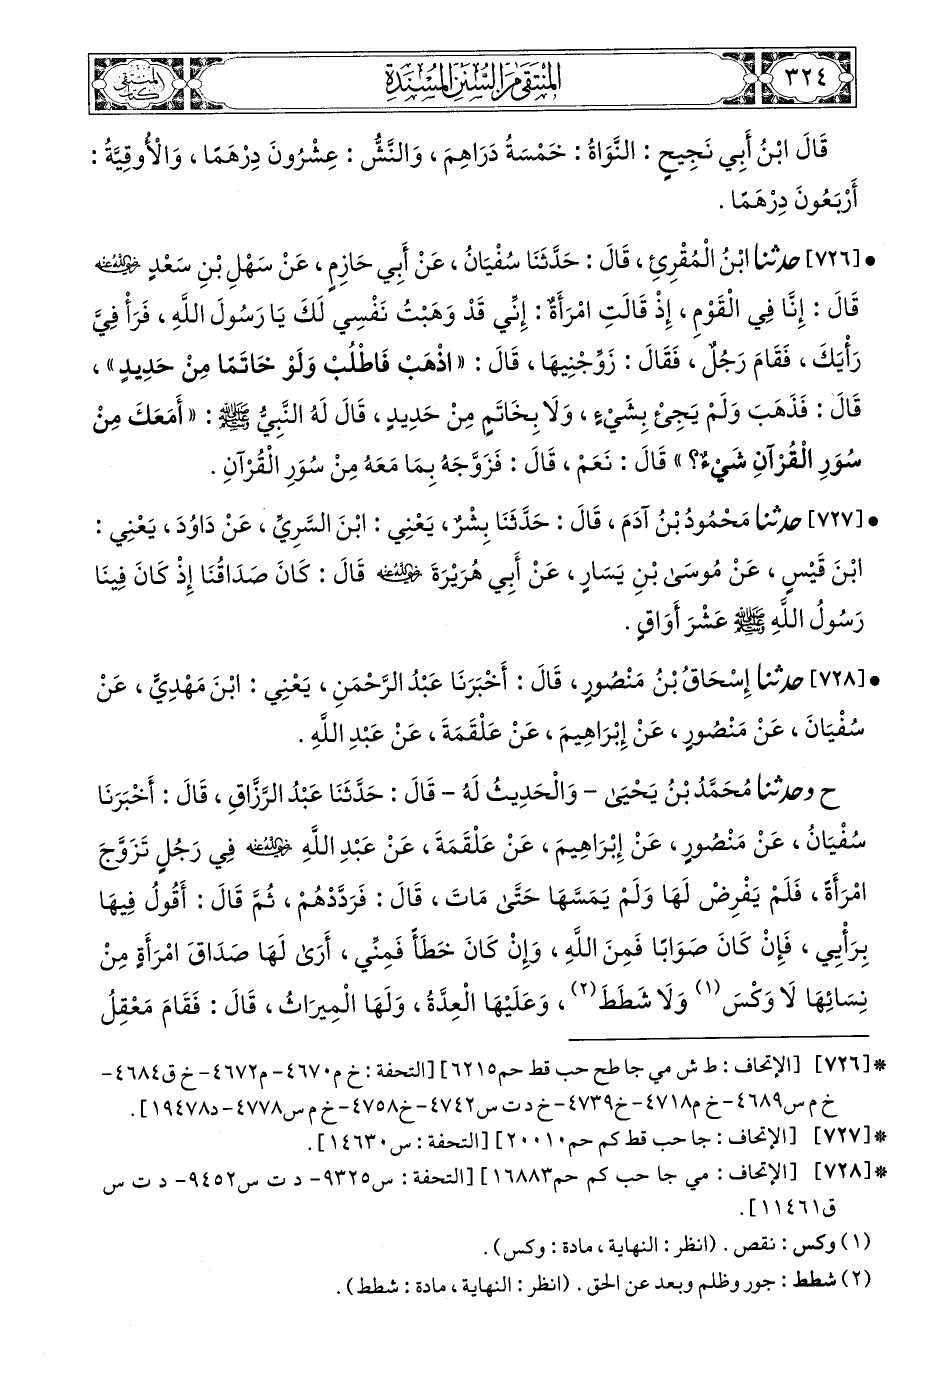 ٣٢٤
المنتقى من السنن المسندة
كتاب المنتقى
قَالَ ابْنُ أَبِي نَجِيحٍ : النَّوَاةُ : خَمْسَةُ دَرَاهِمَ ، وَالنَّشُّ : عِشْرُونَ دِرْهَمًا ، وَالْأُوقِيَّةُ :
أَرْبَعُونَ دِرْهَمًا .
• [٧٢٦] حدثنا ابْنُ الْمُقْرِئِ ، قَالَ : حَدَّثَنَا سُفْيَانُ ، عَنْ أَبِي حَازِمٍ ، عَنْ سَهْلِ بْنِ سَعْدٍ رضي الله عنه
قَالَ : إِنَّا فِي الْقَوْمِ ، إِذْ قَالَتِ امْرَأَةٌ : إِنِّي قَدْ وَهَبْتُ نَفْسِي لَكَ يَا رَسُولَ اللَّهِ ، فَرَأْ فِيَّ
رَأْيَكَ ، فَقَامَ رَجُلٌ ، فَقَالَ : زَوِّجْنِيهَا ، قَالَ : «اذْهَبْ فَاطْلُبْ وَلَوْ خَاتَمًا مِنْ حَدِيدٍ» ،
قَالَ : فَذَهَبَ وَلَمْ يَجِئْ بِشَيْءٍ ، وَلَا بِخَاتَمٍ مِنْ حَدِيدٍ ، قَالَ لَهُ النَّبِيُّ ﷺ : «أَمَعَكَ مِنْ
سُوَرِ الْقُرْآنِ شَيْءٌ؟» قَالَ : نَعَمْ ، قَالَ : فَزَوَّجَهُ بِمَا مَعَهُ مِنْ سُوَرِ الْقُرْآنِ .
• [٧٢٧] حدثنا مَحْمُودُ بْنُ آدَمَ ، قَالَ : حَدَّثَنَا بِشْرٌ ، يَعْنِي : ابْنَ السَّرِيِّ ، عَنْ دَاوُدَ ، يَعْنِي :
ابْنَ قَيْسٍ ، عَنْ مُوسَىٰ بْنِ يَسَارٍ ، عَنْ أَبِي هُرَيْرَةَ رضي الله عنه قَالَ : كَانَ صَدَاقُنَا إِذْ كَانَ فِينَا
رَسُولُ اللَّهِ ﷺ عَشْرَ أَوَاقٍ .
• [٧٢٨] حدثنا إِسْحَاقُ بْنُ مَنْصُورٍ ، قَالَ : أَخْبَرَنَا عَبْدُ الرَّحْمَنِ ، يَعْنِي : ابْنَ مَهْدِيٍّ ، عَنْ
سُفْيَانَ ، عَنْ مَنْصُورٍ ، عَنْ إِبْرَاهِيمَ ، عَنْ عَلْقَمَةَ ، عَنْ عَبْدِ اللَّهِ .
ح وحدثنا مُحَمَّدُ بْنُ يَحْيَىٰ - وَالْحَدِيثُ لَهُ - قَالَ : حَدَّثَنَا عَبْدُ الرَّزَّاقِ ، قَالَ : أَخْبَرَنَا
سُفْيَانُ ، عَنْ مَنْصُورٍ ، عَنْ إِبْرَاهِيمَ ، عَنْ عَلْقَمَةَ ، عَنْ عَبْدِ اللَّهِ رضي الله عنه فِي رَجُلٍ تَزَوَّجَ
امْرَأَةً ، فَلَمْ يَفْرِضْ لَهَا وَلَمْ يَمَسَّهَا حَتَّىٰ مَاتَ ، قَالَ : فَرَدَّدْهُمْ ، ثُمَّ قَالَ : أَقُولُ فِيهَا
بِرَأْيِي ، فَإِنْ كَانَ صَوَابًا فَمِنَ اللَّهِ ، وَإِنْ كَانَ خَطَأً فَمِنِّي ، أَرَىٰ لَهَا صَدَاقَ امْرَأَةٍ مِنْ
نِسَائِهَا لَا وَكْسَ (١) وَلَا شَطَطَ (٢) ، وَعَلَيْهَا الْعِدَّةُ ، وَلَهَا الْمِيرَاثُ ، قَالَ : فَقَامَ مَعْقِلُ
* [٧٢٦] [الإتحاف : ط ش مي جا طح حب قط حم ٦٢١٥] [التحفة : خ م ٤٦٧٠- م ٤٦٧٢- خ ق ٤٦٨٤-
خ م س ٤٦٨٩- خ م ٤٧١٨- خ ٤٧٣٩- خ د ت س ٤٧٤٢- خ ٤٧٥٨- خ م س ٤٧٧٨- د ١٩٤٧٨] .
* [٧٢٧] [الإتحاف : جا حب قط كم حم ٢٠٠١٠] [التحفة : س ١٤٦٣٠] .
* [٧٢٨] [الإتحاف : مي جا حب كم حم ١٦٨٨٣] [التحفة : س ٩٣٢٥- د ت س ٩٤٥٢- د ت س
ق ١١٤٦١] .
(١) وكس : نقص . (انظر : النهاية ، مادة : وكس) .
(٢) شطط : جور وظلم وبعد عن الحق . (انظر : النهاية ، مادة : شطط) .